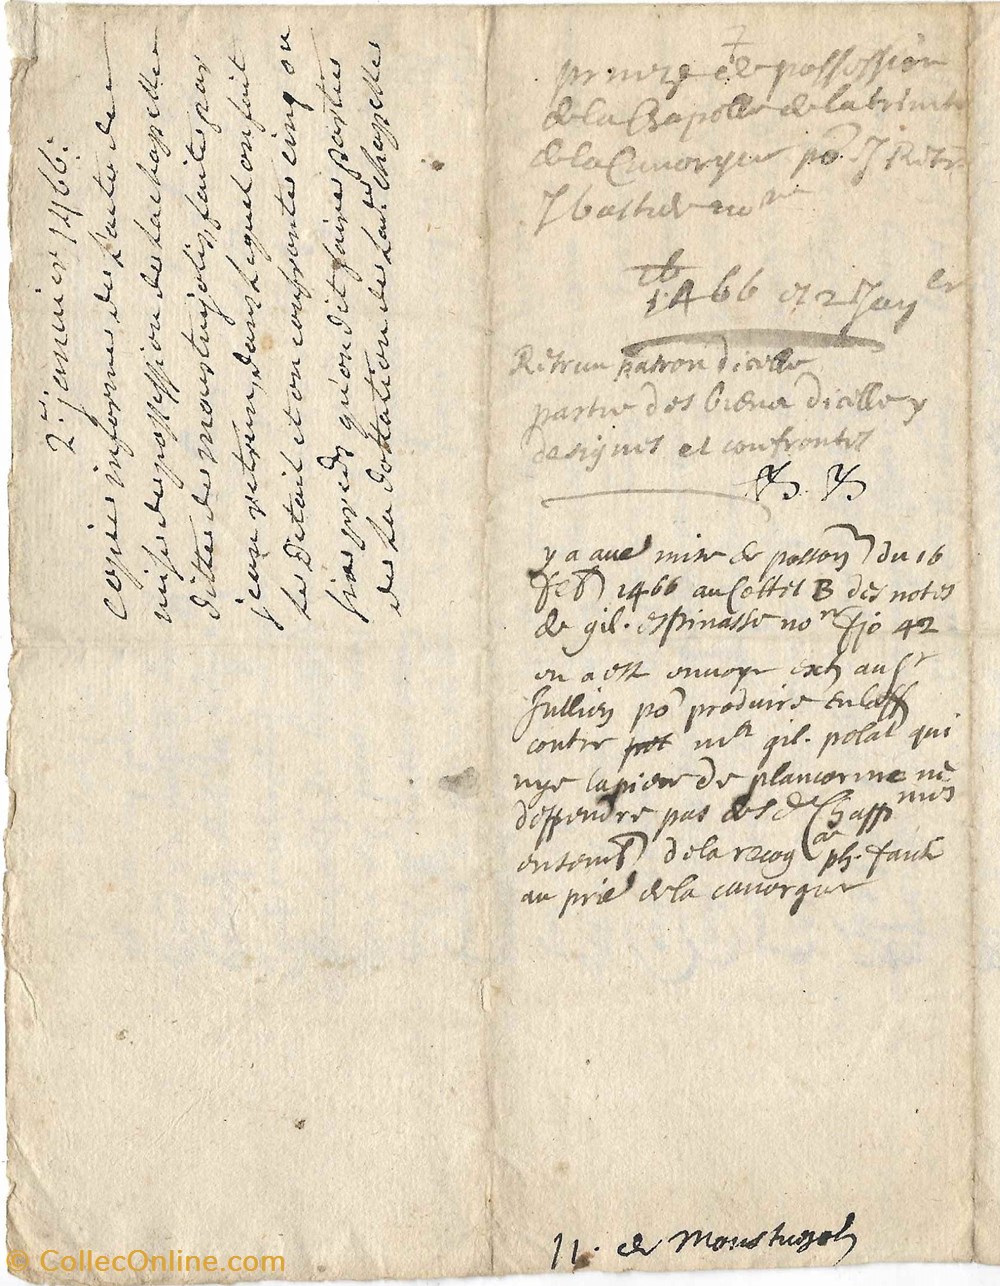 2e. janvier 1466.
copie informe de l'acte de
mise de possession de la chapelle
ditte de moustujols, faite par
jean retrun, dans lequel on fait
le détail et on confronte cinq ou
six preds qu'on dit faire parties
de la dottation de lad. chapelle
prinze de possession
de la Chapelle de la trinite
de la Canorgue po. J Retr
J bastide no.re
1466 et 2 Jan.er
Retrun patron dicelle
partie des biens dicelle y
designes et confrontes
y a aue mise de posson du 16
feb 1466 au Cottet B des notes
de gil. espinasse no.re fo 42
en a est envoye ext au sr
Jullien po produire
contre mr gil. polat qui
nye la piece de plancorme ne
deppendre pas des d
ensemb de la recog ph. faite
au prie de la canorgue
11. de Moustujols
© CollecOnline.com